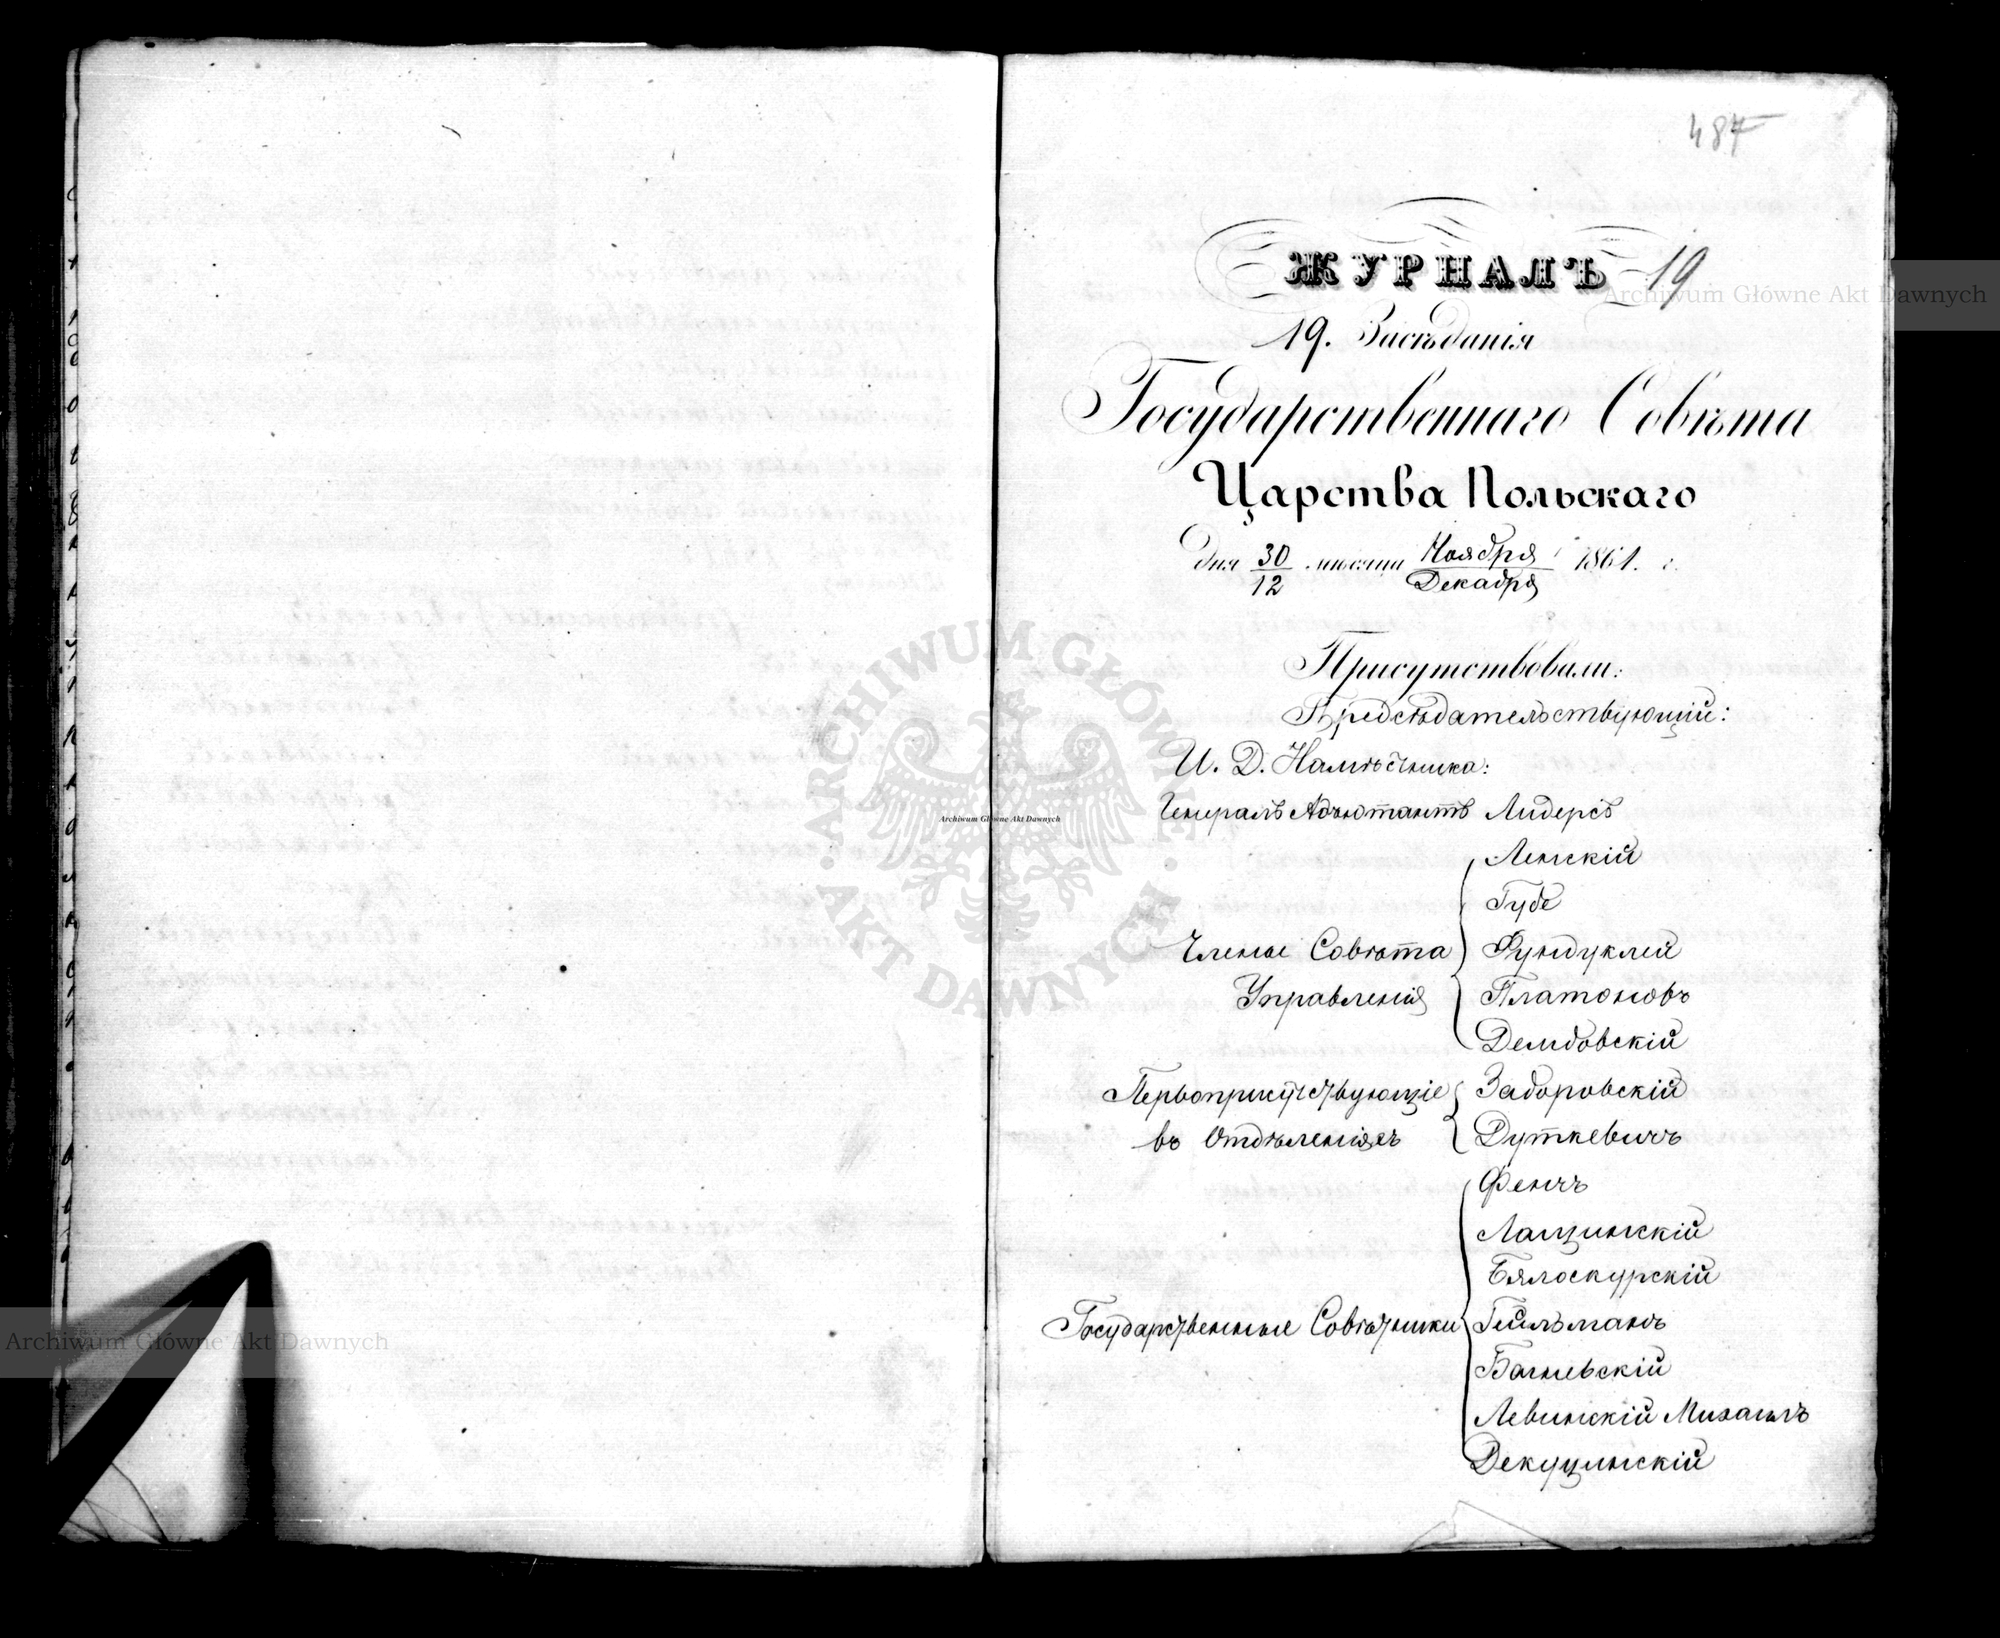 487
ЖУРНАЛЪ 19
19. Засѣданія
Государственнаго Совѣта
Царства Польскаго
дня 30/12 мѣсяца Ноября/Декабря 1861. г.
Присутствовали:
Предсѣдательствующій:
И. Д. Намѣстника:
Генералъ Адъютантъ Лидерсъ
Члены Совѣта Управленія
Ленскій
Губе
Фундуклей
Платоновъ
Дембовскій
Первоприсутствующіе въ Отдѣленіяхъ
Заборовскій
Дуткевичъ
Государственные Совѣтники
Фенчъ
Лащинскій
Бялоскурскій
Гейльманъ
Багневскій
Левинскій Михаилъ
Декуцинскій
Archiwum Główne Akt Dawnych
Archiwum Główne Akt Dawnych
Archiwum Główne Akt Dawnych
ARCHIWUM GŁÓWNE · AKT DAWNYCH ·